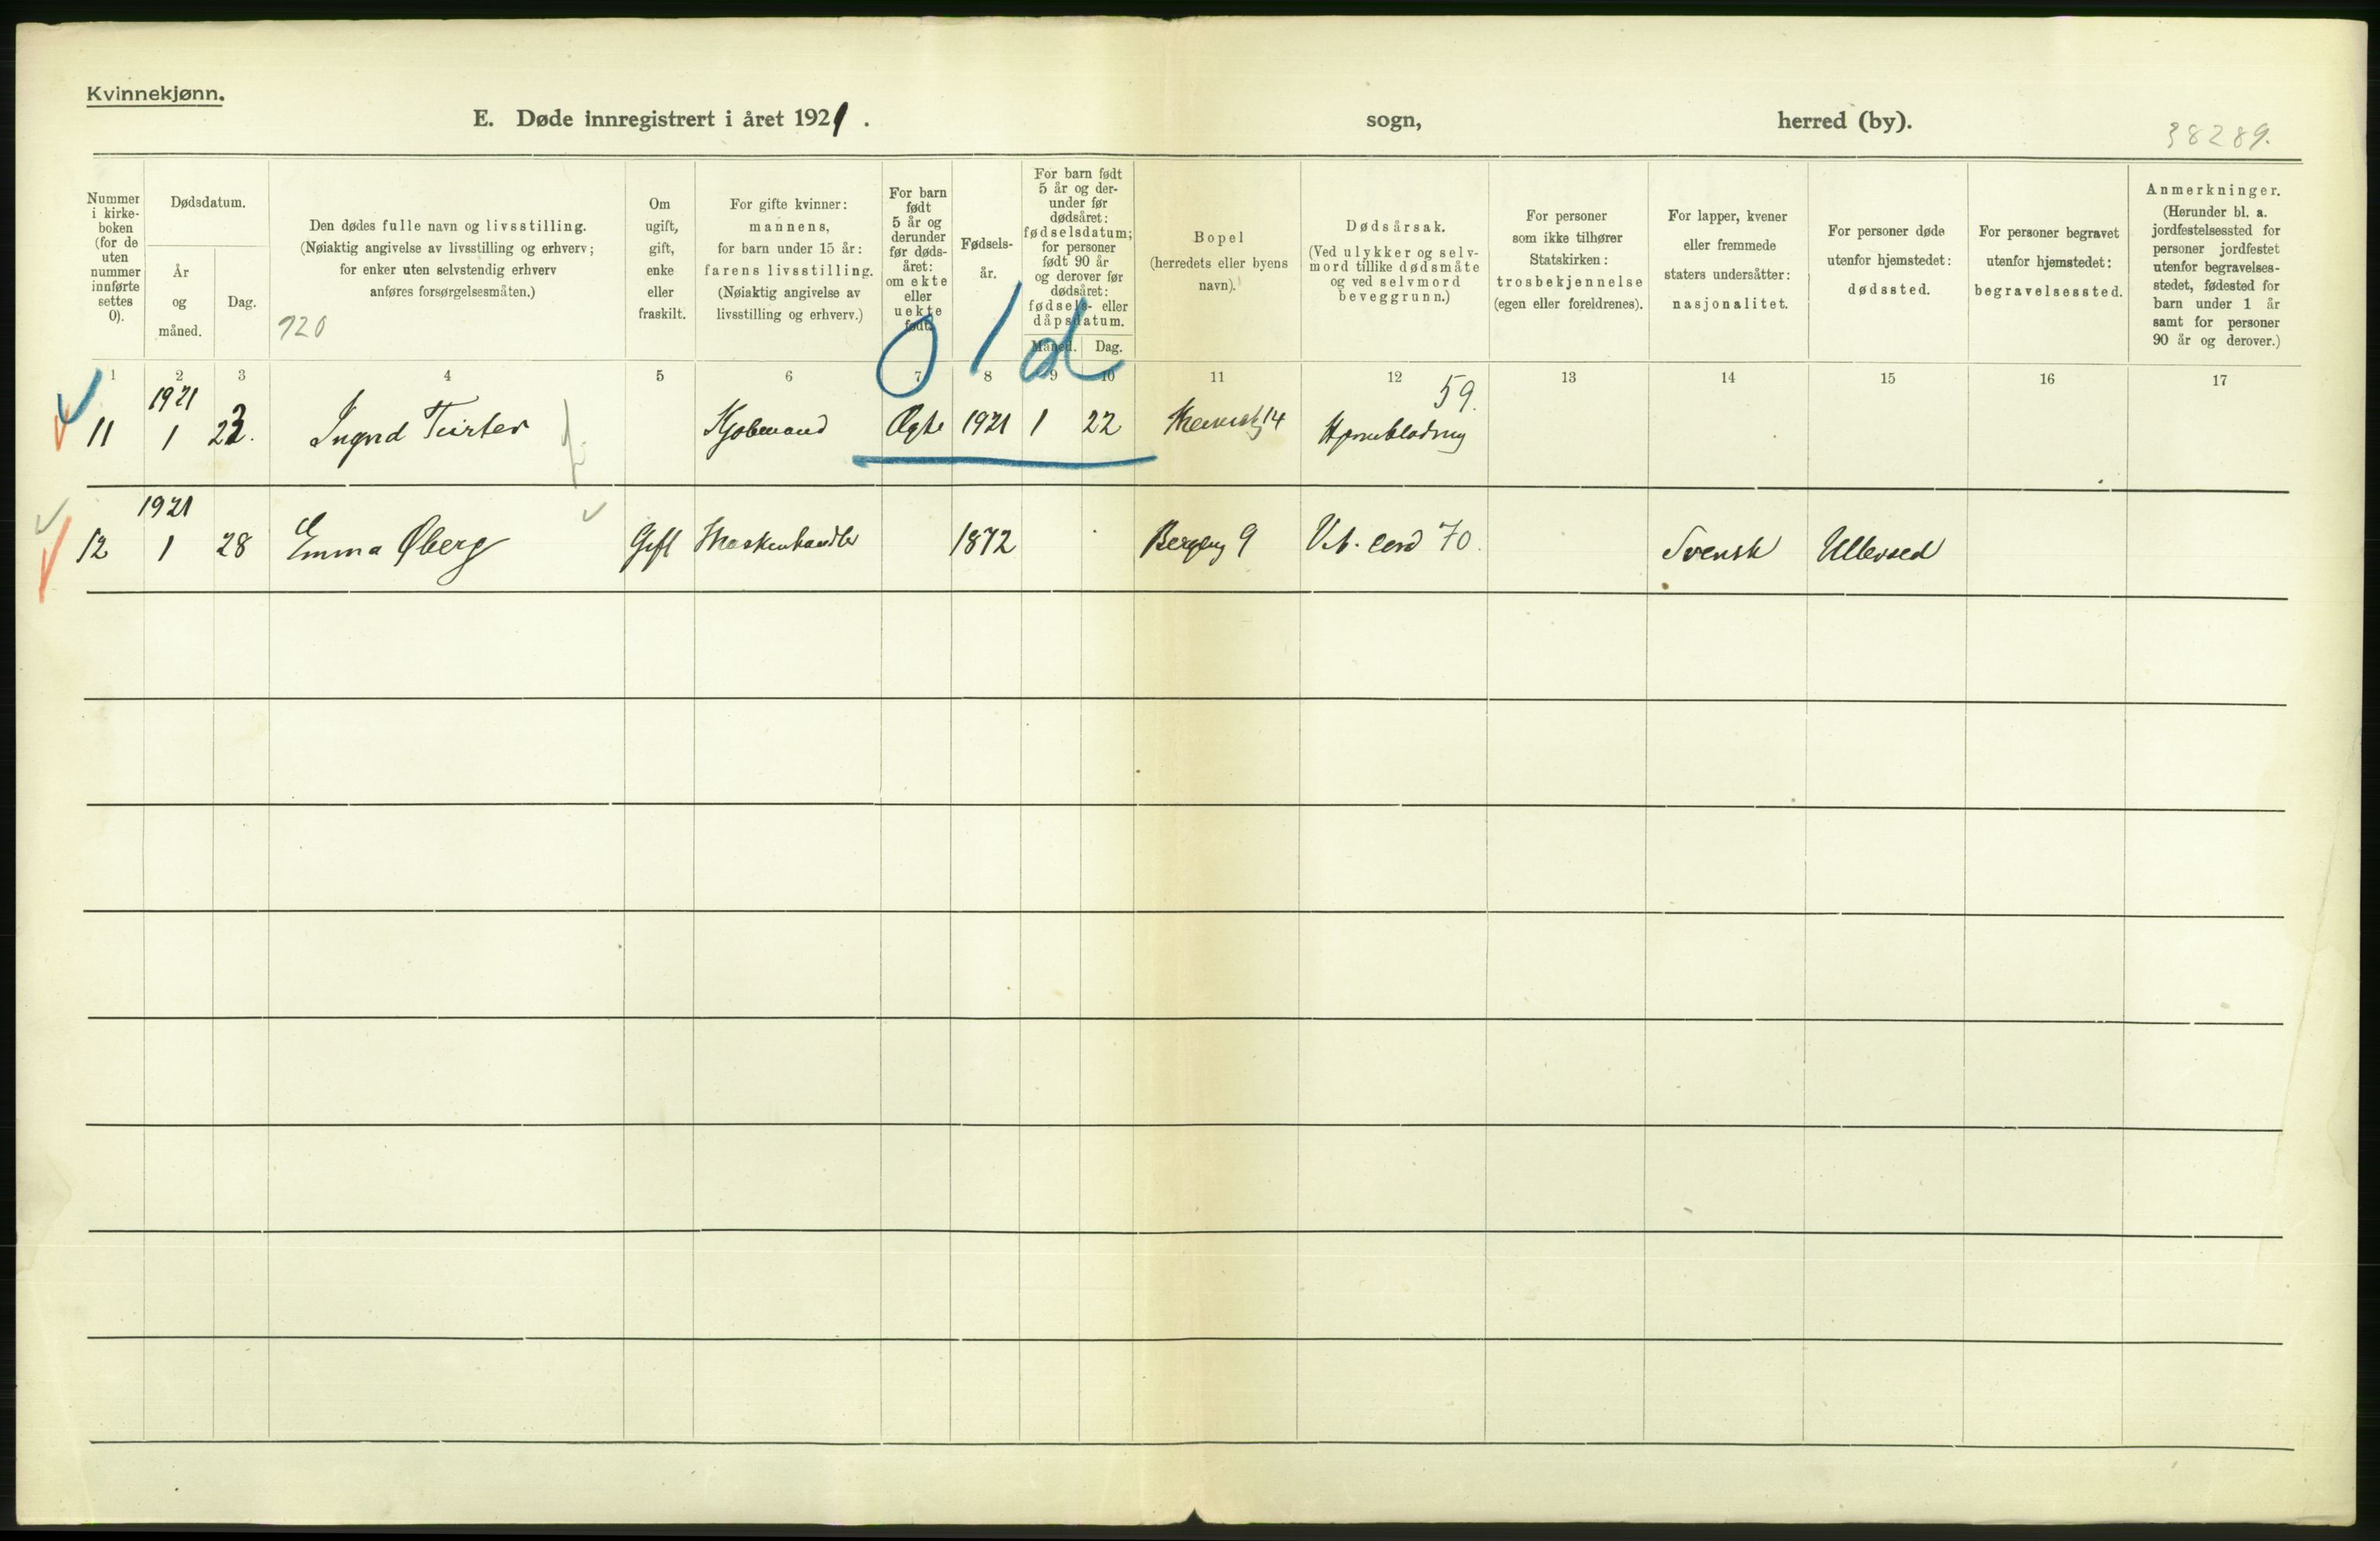 Kvinnekjønn.
E. Døde innregistrert i året 1921. sogn, herred (by).
38289.
Nummer i kirke-boken (for de uten nummer innførte settes 0).
Dødsdatum.
År og måned.
Dag.
Den dødes fulle navn og livsstilling.
(Nøiaktig angivelse av livsstilling og erhverv;
for enker uten selvstendig erhverv
anføres forsørgelsesmåten.)
120
Om ugift, gift, enke eller fraskilt.
For gifte kvinner:
mannens,
for barn under 15 år:
farens livsstilling.
(Nøiaktig angivelse av
livsstilling og erhverv.)
For barn født 5 år og derunder før døds-året: om ekte eller uekte født.
Fødsels-år.
For barn født
5 år og der-
under før
dødsåret:
fødselsdatum;
for personer
født 90 år
og derover før
dødsåret:
fødsels- eller
dåpsdatum.
Måned. Dag.
Bopel
(herredets eller byens
navn).
Dødsårsak.
(Ved ulykker og selv-
mord tillike dødsmåte
og ved selvmord
beveggrunn.)
For personer
som ikke tilhører
Statskirken:
trosbekjennelse
(egen eller foreldrenes).
For lapper, kvener
eller fremmede
staters undersåtter:
nasjonalitet.
For personer døde
utenfor hjemstedet:
dødssted.
For personer begravet
utenfor hjemstedet:
begravelsessted.
Anmerkninger.
(Herunder bl. a.
jordfestelsessted for
personer jordfestet
utenfor begravelses-
stedet, fødested for
barn under 1 år
samt for personer
90 år og derover.)
1 2 3 4 5 6 7 8 9 10 11 12 13 14 15 16 17
0 1 d
1921 59.
11 1 23. Ingrid Kjøbmand Ægte 1921 1 22 14
1921
12 1 28 Emma Øberg Gift 1872 9 70. Svensk Ullevaal